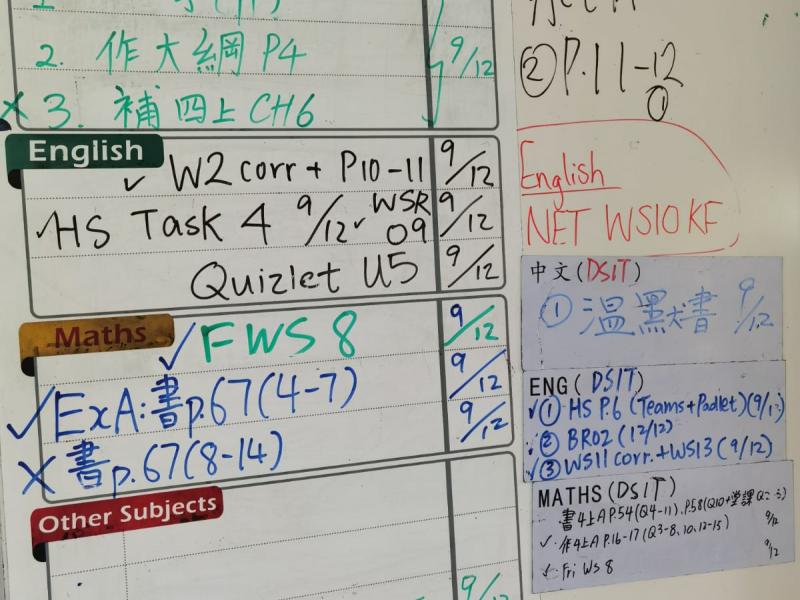 2. 作大綱 P4 9/12
× 3. 補四上 CH6
English
✓ W2 corr + P10-11 9/12
✓ HS Task 4 9/12 ✓ WSR 09 9/12
Quizlet U5 9/12
Maths
✓ FWS 8 9/12
✓ ExA: 書 p.67 (4-7) 9/12
× 書 p.67 (8-14) 9/12
Other Subjects
9/12
② P.11-12
①
English
NET WS10 KF
中文(DSIT)
① 溫默書 9/12
ENG (DSIT)
✓① HS P.6 (Teams+Padlet)
② BR02 (12/12)
✓③ WS11 corr.+WS13 (9/12)
MATHS (DSIT)
書4上A P.54(Q4-11). P.58(Q10+堂課 9/12
✓ 作4上A P.16-17 (Q3-8、10、12-15)
✓ Fri WS 8 9/12